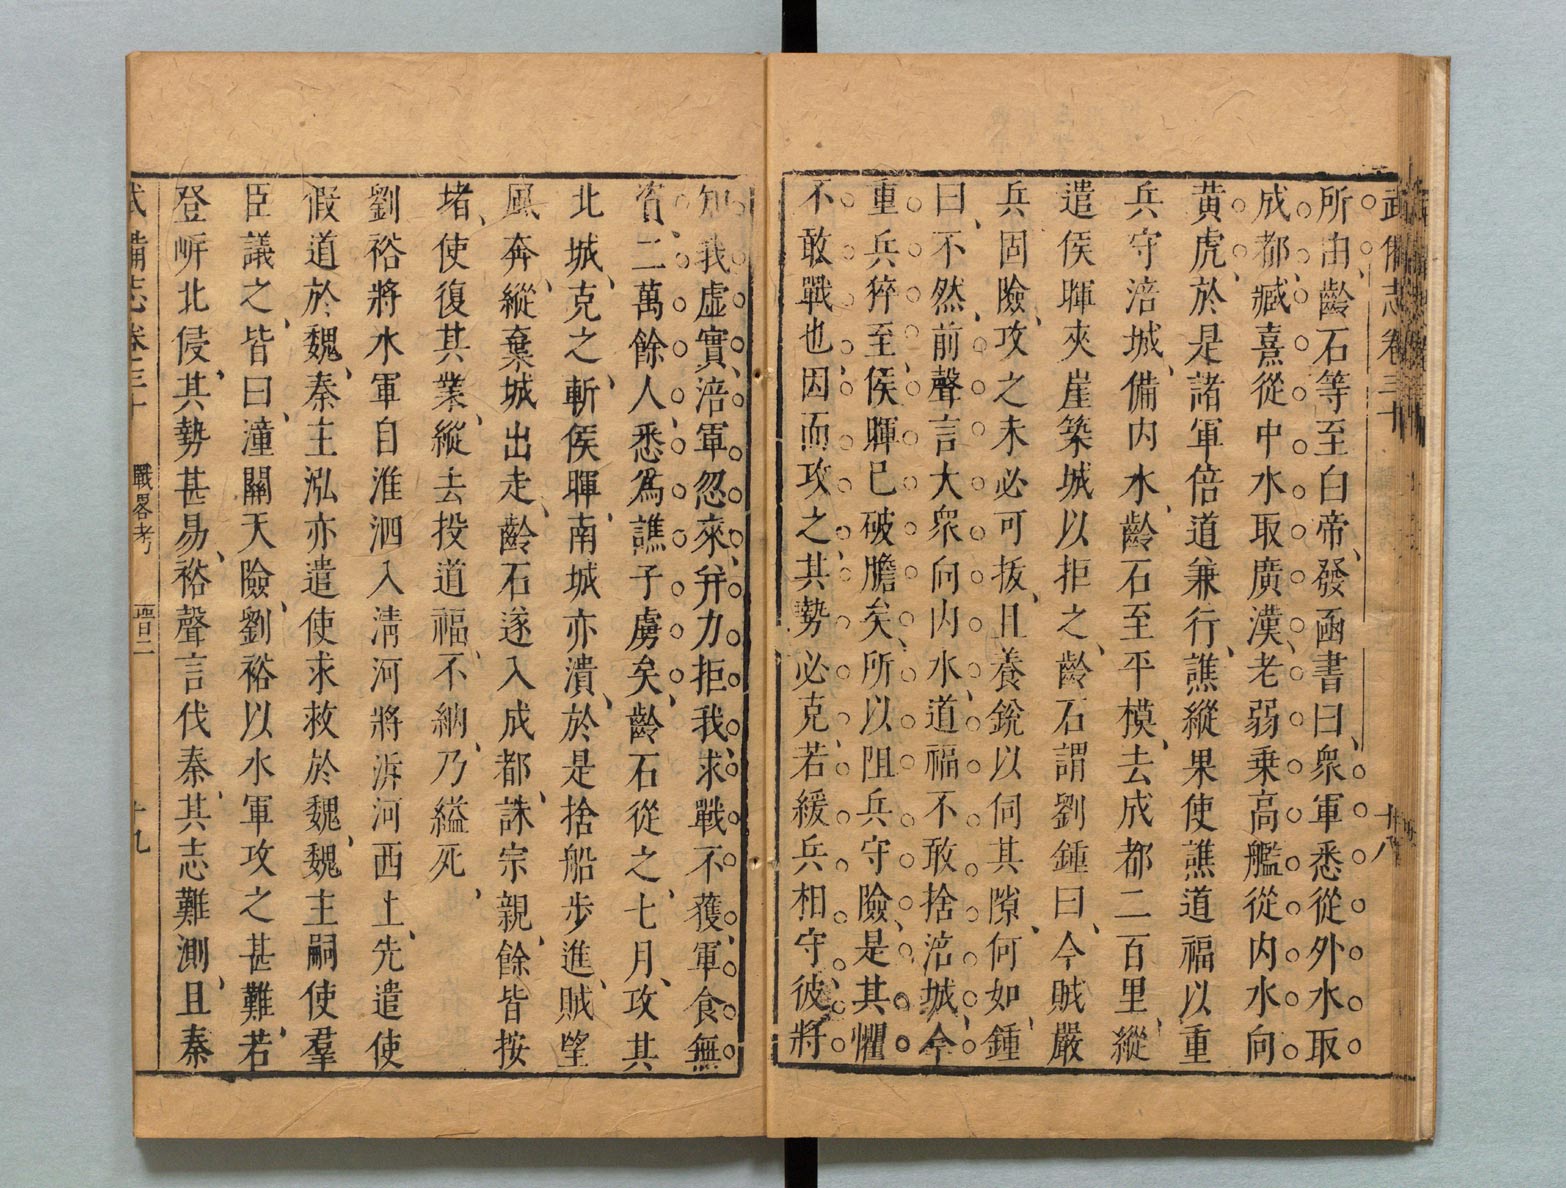 武備志卷三十
十八
所由齡石等至白帝發函書曰衆軍悉從外水取
成都臧熹從中水取廣漢老弱乗高艦從内水向
黄虎於是諸軍倍道兼行譙縱果使譙道福以重
兵守涪城備内水齡石至平模去成都二百里縱
遣侯暉夾崖築城以拒之齡石謂劉鍾曰今賊嚴
兵固險攻之未必可拔且養銳以伺其隙何如鍾
曰不然前聲言大衆向内水道福不敢捨涪城今
重兵猝至侯暉已破膽矣所以阻兵守險是其懼
不敢戰也因而攻之其勢必克若緩兵相守彼將
知我虛實涪軍忽來并力拒我求戰不獲軍食無
資二萬餘人悉爲譙子虜矣齡石從之七月攻其
北城克之斬侯暉南城亦潰於是捨船步進賊望
風奔縱棄城出走齡石遂入成都誅宗親餘皆按
堵使復其業縱去投道福不納乃縊死
劉裕將水軍自淮泗入淸河將泝河西上先遣使
假道於魏秦主泓亦遣使求救於魏魏主嗣使羣
臣議之皆曰潼關天險劉裕以水軍攻之甚難若
登岍北侵其勢甚易裕聲言伐秦其志難測且秦
武備志卷三十
戰畧考
晉二
十九